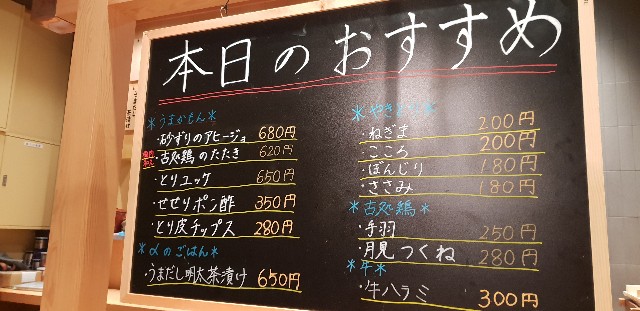 本日のおすすめ
*うまかもん*
・砂ずりのアヒージョ 680円
・古処鶏のたたき 620円
・とりユッケ 650円
・せせりポン酢 350円
・とり皮チップス 280円
*〆のごはん*
・うまだし明太茶漬け 650円
*やきとり*
・ねぎま 200円
・こころ 200円
・ぼんじり 180円
・ささみ 180円
*古処鶏*
・手羽 250円
・月見つくね 280円
*牛*
・牛ハラミ 300円